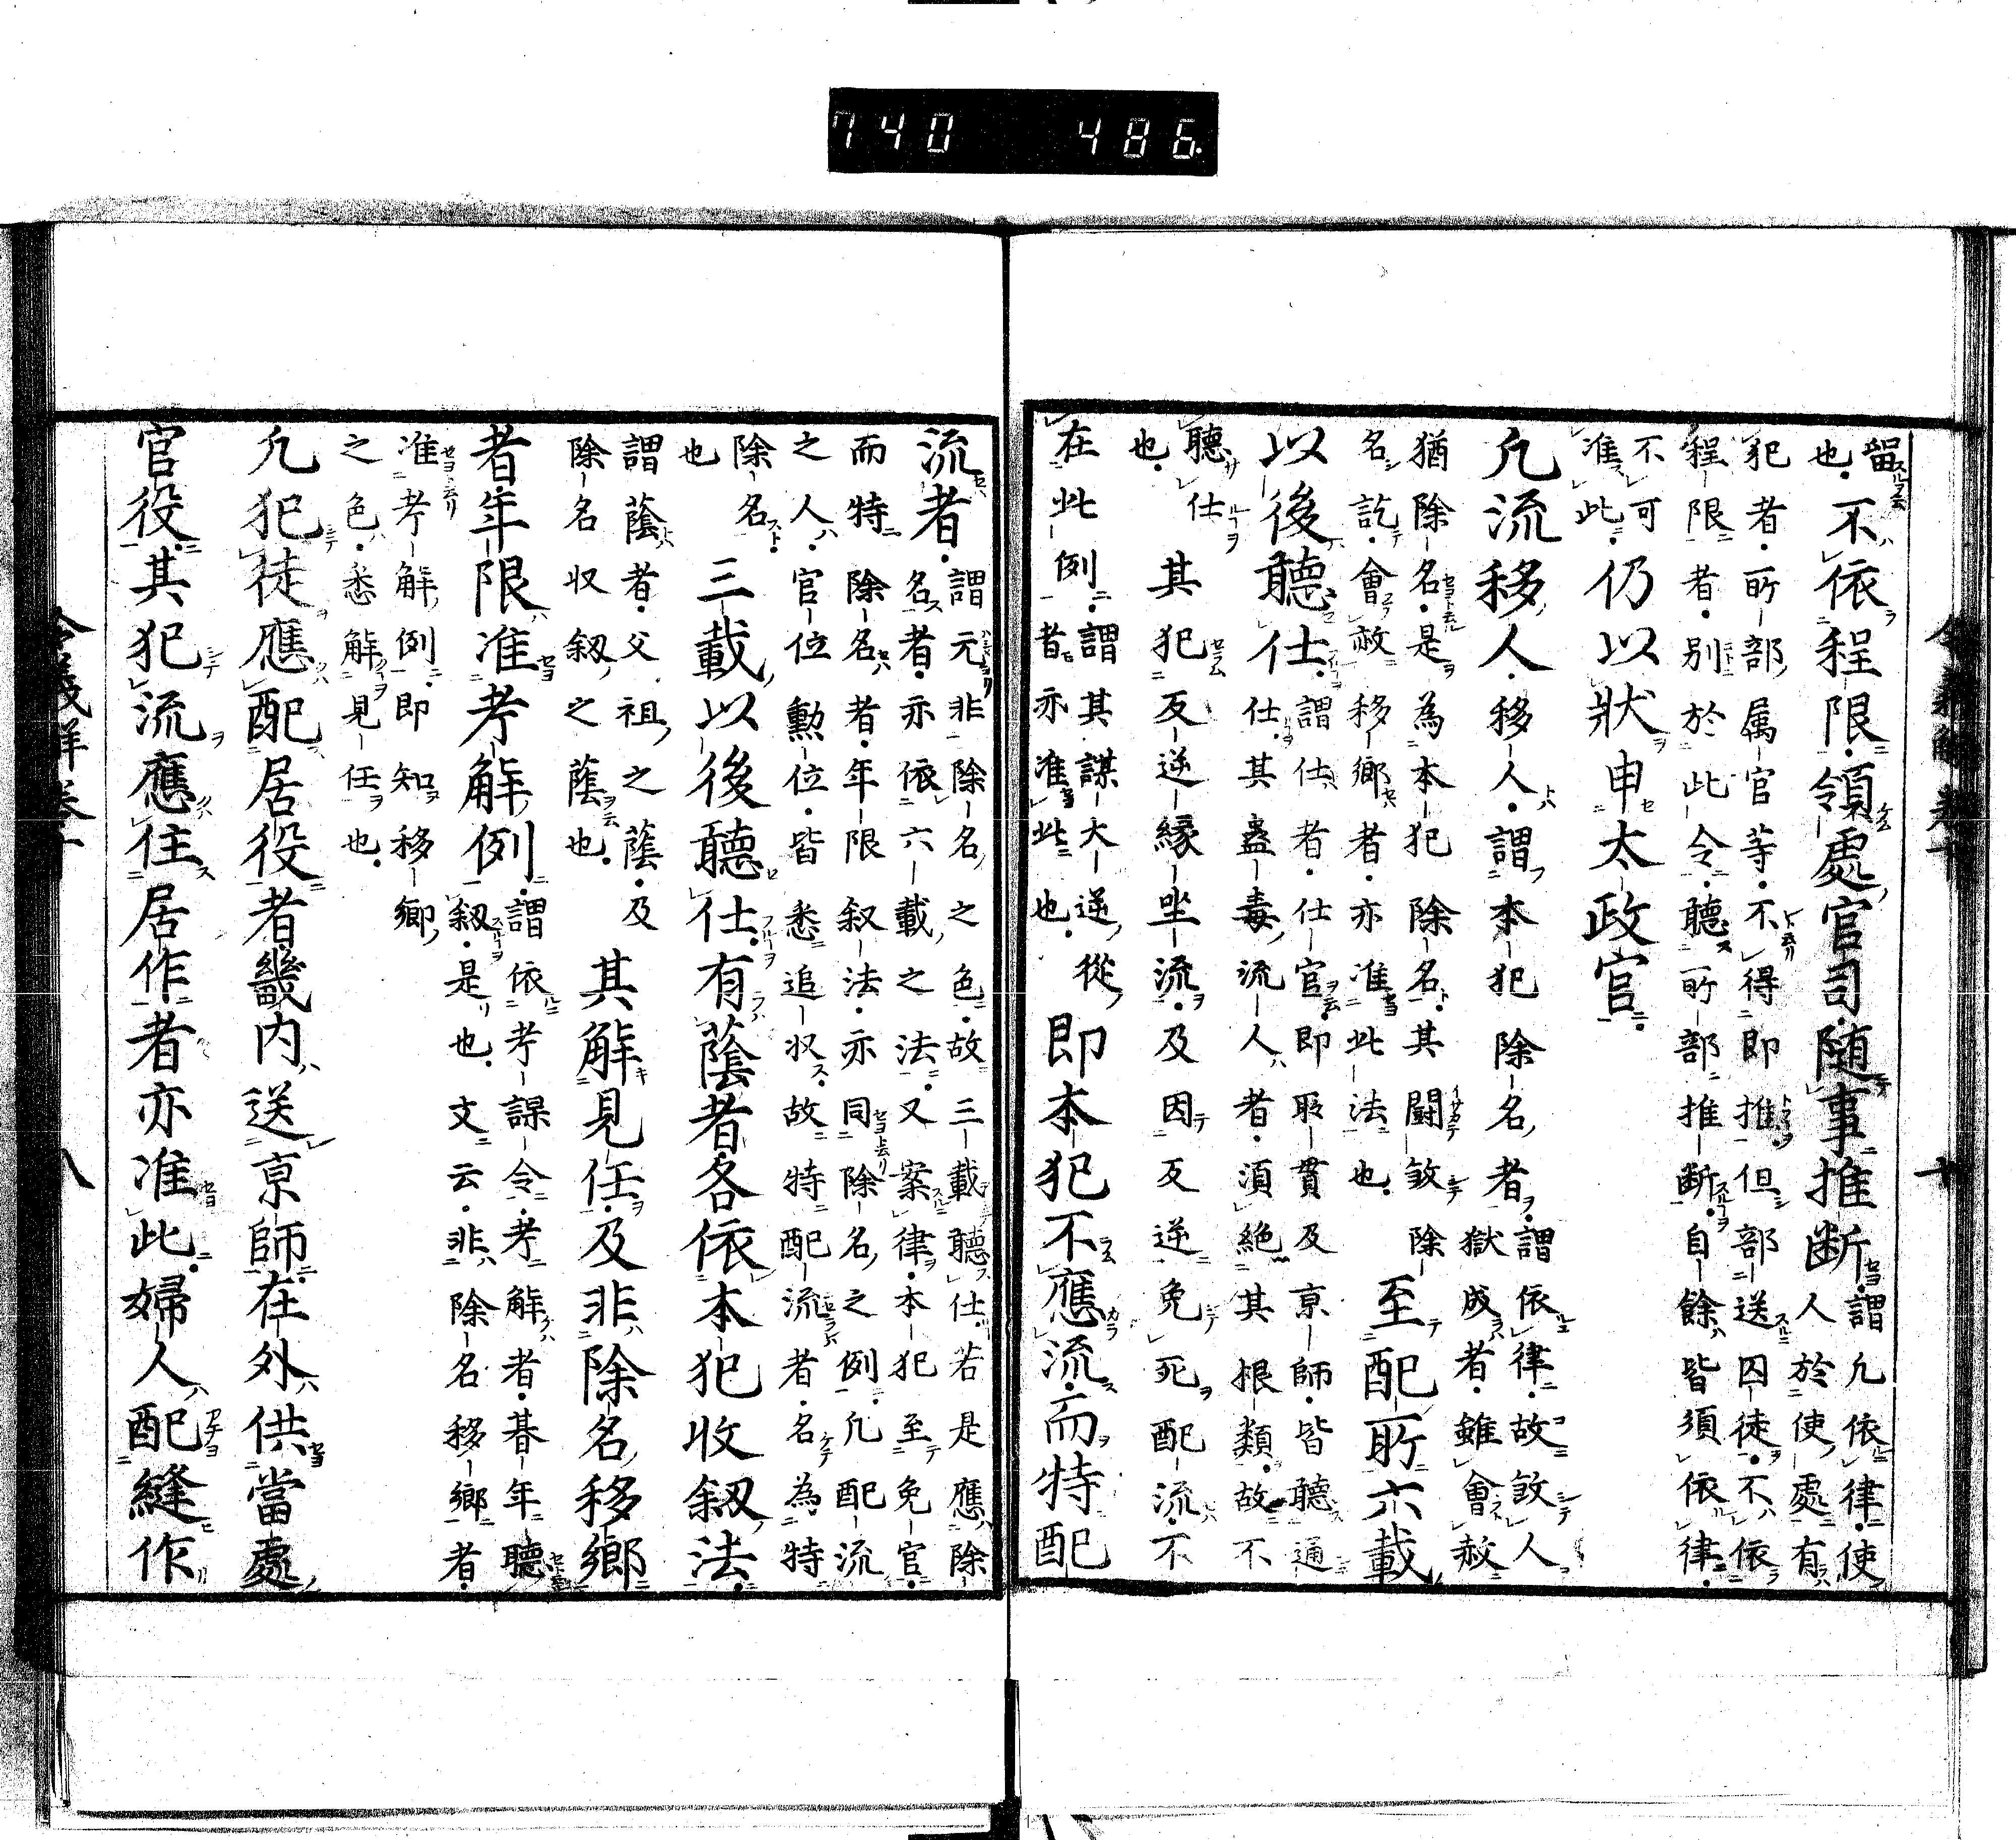 留
也。不依程限領處官司隨事推断
謂凡依律使
人於使處有
犯者所部属官等不得即推但部送囚徒不依
程限者別於此令聽所部推断自餘皆須依律
不可
准此仍以狀申太政官
凡流移人移人謂本犯除名者
謂依律故煞人
獄成者雖會赦
猶除名是為本犯除名其闘煞除
名訖會赦移郷者亦准此法也
至配所六載
以後聽仕
謂仕者仕官即取貫及京師皆聽通
仕其蠱毒流人者須絶其根類故不
聽仕
也
其犯反逆縁坐流及因反逆免死配流不
在此例
謂其謀大逆從
者亦准此也
即本犯不應流而特配
流者
謂元非除名之色故三載聽仕若是應除
名者亦依六載之法又案律本犯至免官
而特除名者年限叙法亦同除名之例凡配流
之人官位勲位皆悉追収故特配流者名為特
除名
也
三載以後聽仕有蔭者各依本犯收叙法
謂蔭者父祖之蔭及
除名収叙之蔭也
其解見任及非除名移郷
者年限准考解例
謂依考課令考解者朞年聽
叙是也文云非除名移郷者
准考解例即知移郷
之色悉解見任也
凡犯徒應配居役者畿内送京師在外供當處
官役其犯流應住居作者亦准此婦人配縫作
八
740 486